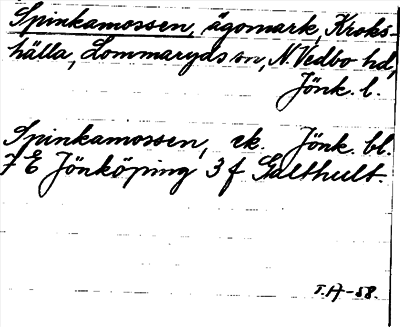 Spinkamossen, ägomark, Kroks-
hälla, Lommaryds sn, N. Vedbo hd,
Jönk. l.
Spinkamossen, ek. Jönk. bl.
7 E Jönköping 3 f Galthult.
T.A-58.